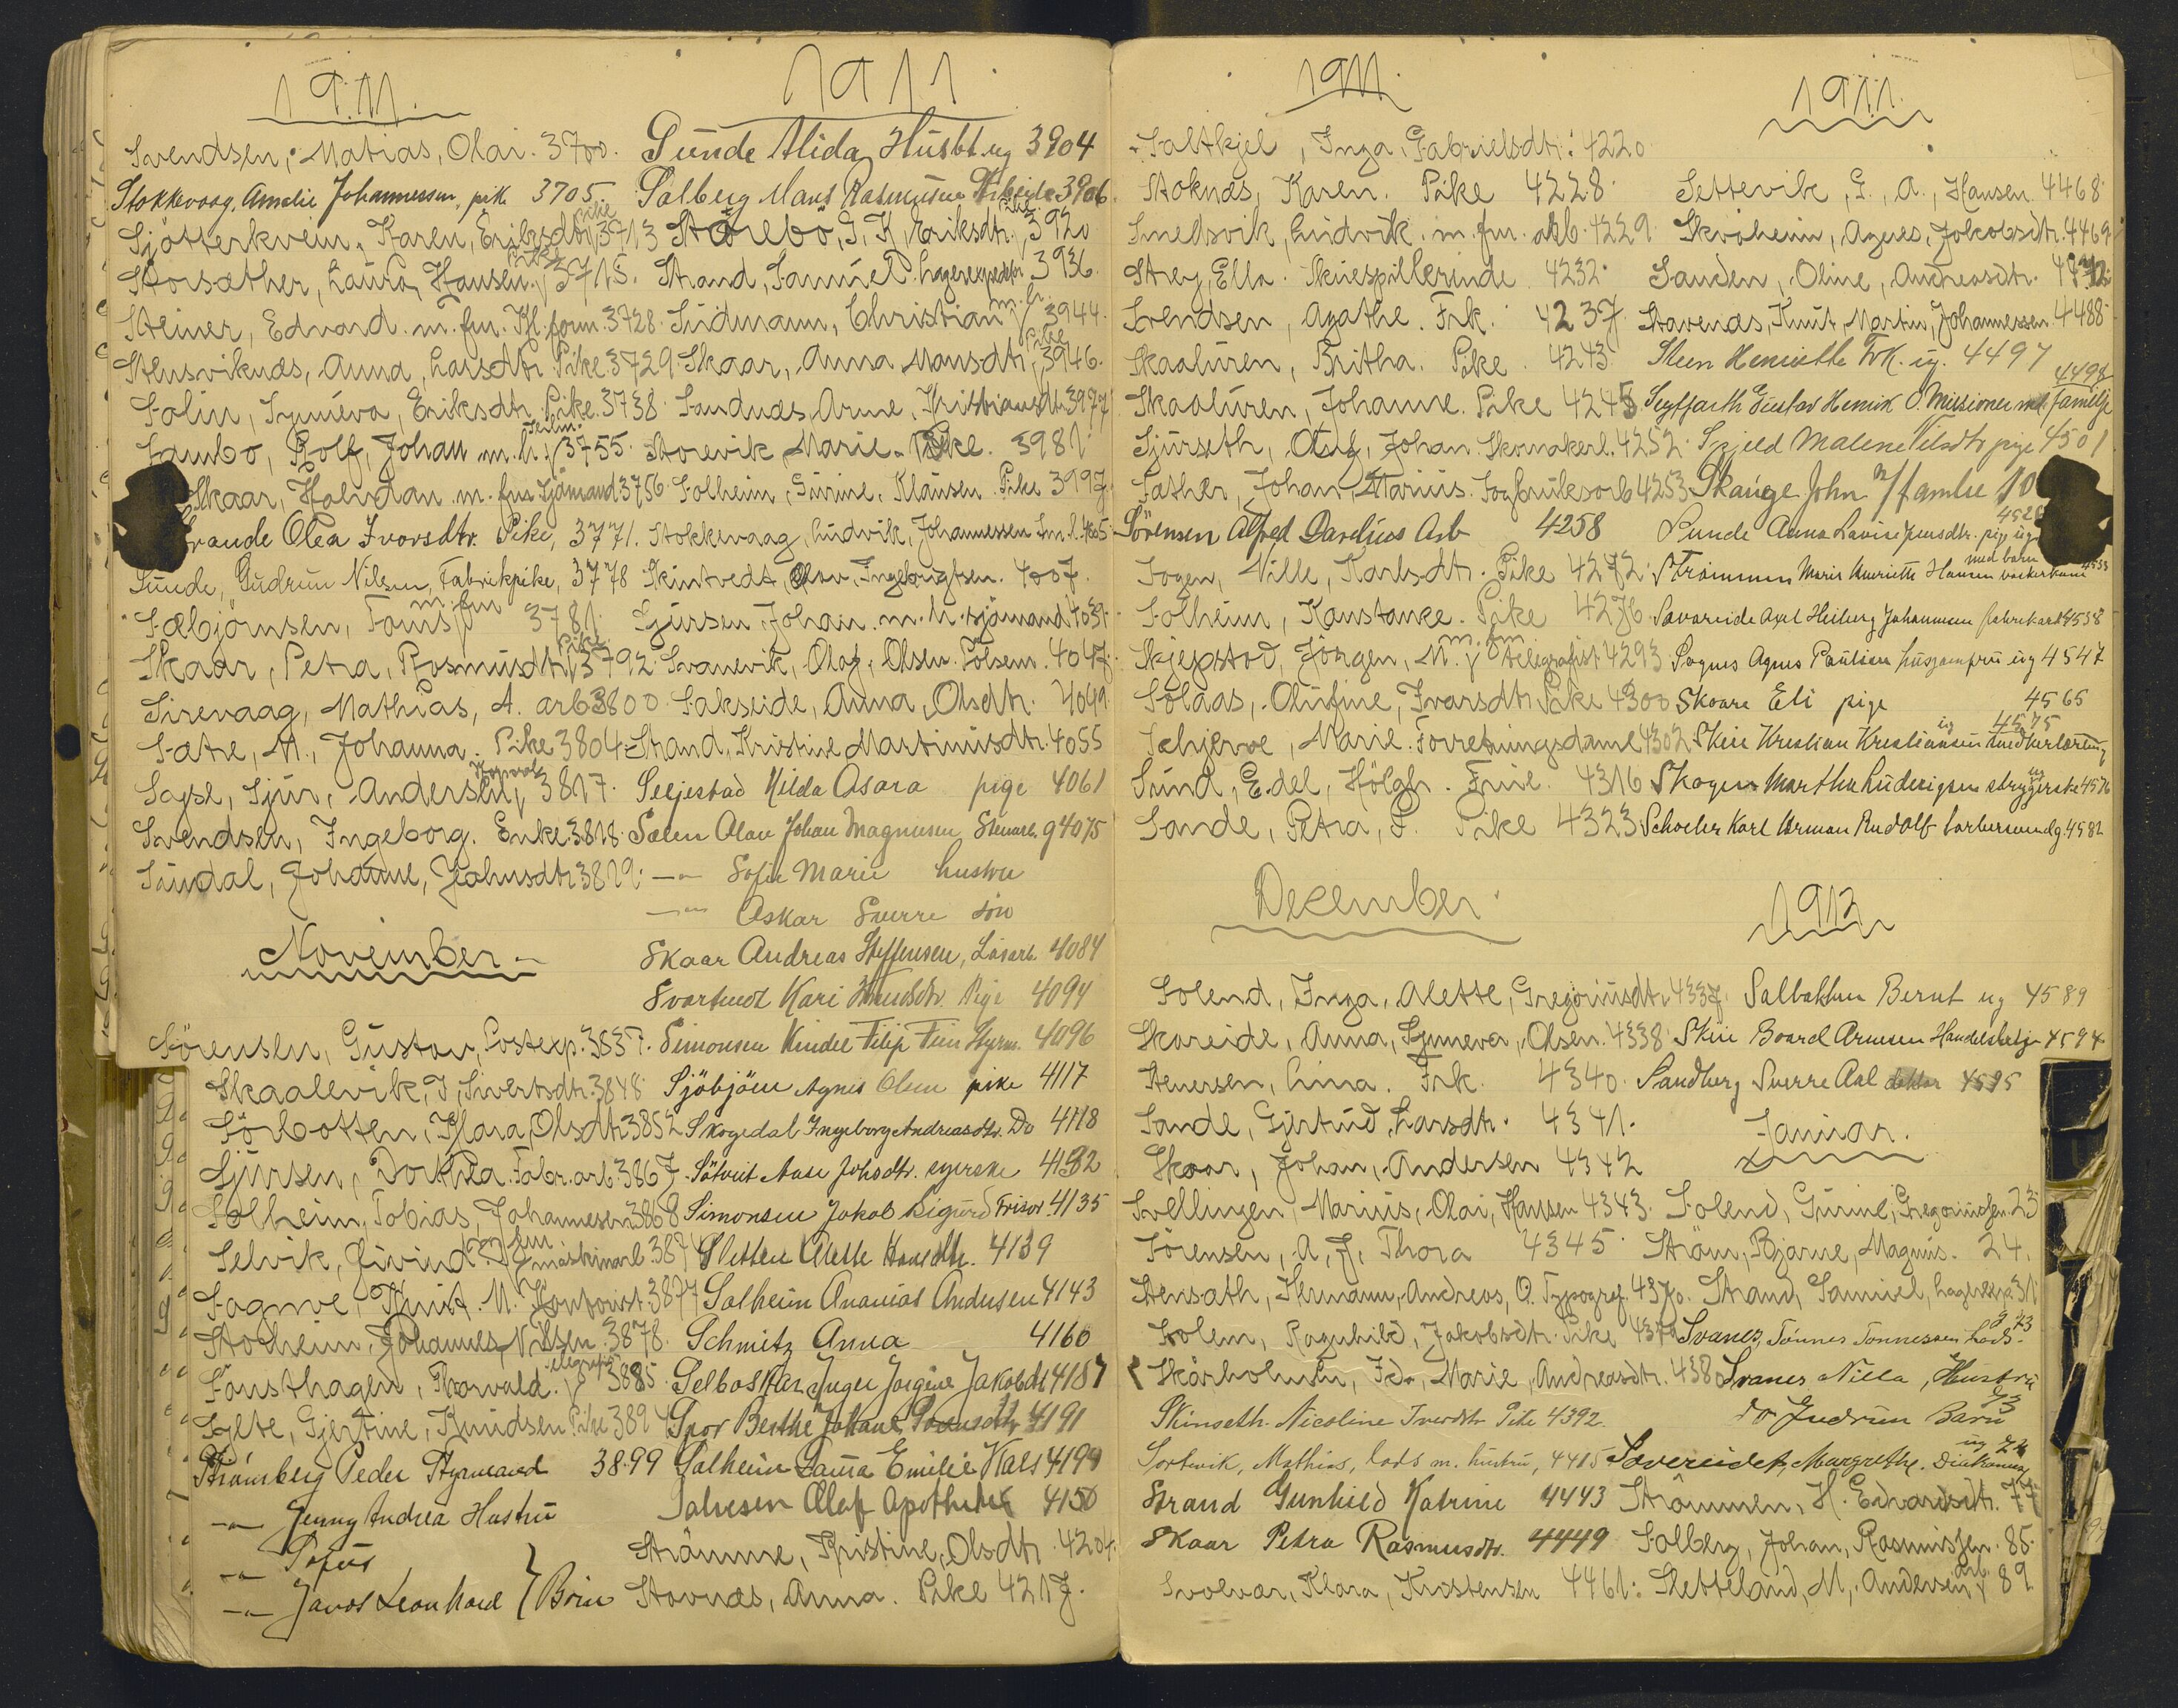 1911.
Svendsen, Matias, Olai. 3700.
Stokkevaag, Amalie Johannessen, pik 3705
Sjötterkvein, Karen, Eriksdtr. Pike 3713
Storsæther, Laura, Hansen. Pike 3715.
Steiner, Edvard. m. fm. Kfl. form. 3728.
Stensviknæs, Anna, Larsdtr. Pike. 3729.
Solin, Synneva, Eriksdtr. Pike. 3738.
Sambo, Rolf, Johan m. h. 3755.
Skaar, Halvdan. m. fru Sjömand 3756.
Olea Ivarsdtr. Pike, 3771.
Sunde, Gudrun Nilsen, Fabrikpike, 3778
Sæbjörnsen, Tomas m. fru 3781.
Skaar, Petra, Rasmusdtr. Pike 3792.
Sirevaag, Mathias, A. arb 3800.
Sæte, M., Johanna. Pike 3804.
Sagse, Sjur, Andersen, 3817.
Svendsen, Ingeborg. Enke. 3818.
Sundal, Johanne, Johnsdtr. 3829.
November
Sörensen, Gustav, Postexp. 3837.
Skaalevik, I, Sivertsdtr. 3848.
Sörbotten, Klara, Olsdtr 3852
Sjursen, Dorthea. Fabr. arb. 3867.
Solheim, Tobias, Johannesen 3868
Selvik, Eivind. m fru maskinarb. 387
Sagnve, Knut. M. Kontorist. 3877
Stolheim, Johannes, Nilsen. 3878.
Sonsthagen, Thorvald. Telegrafist 3885.
Sylte, Gjertine, Knudsen Pike 389
Strömberg Peder Styrmand 3899
-"- Jenny Andrea Hustru
-"- Sofus
-"- Leonhard } Börn
1911
Sunde Alida Husbt. ug 3904
Solberg Mons Rasmusen 3906
Storebö, I, K, Eriksdtr. Pike 3920
Strand, Samuel. Lagerexpeditör 3936.
Sudmann, Christian m. h. 3944.
Skaar, Anna Monsdtr. Pike 3946.
Sandnæs, Arne, Kristiansdtr 3977
Storevik, Marie. Pike. 3981.
Solheim, Gurine, Klausen. Pike 3997.
Stokkevaag, Ludvik, Johannessen 4005
Skintvedt, Olav, Ingebrigtsen. 4007.
Sjursen, Johan. m. h. sjömand 4039.
Svanevik, Olaf, Olsen. Pölsem. 4047.
Sakseide, Anna, Olsdtr. 4049
Strand, Kristine Martinusdtr. 4055
Seljestad Hilda Asara pige 4061
Sælen Olav Johan Magnusen, Stenarb. g 4075
-"- Sofie Marie hustru
-"- Oskar Sverre sön
Skaar Andreas Steffensen, Lösarb. 4084
Svartvedt Kari Knudsdtr. Pige 4094
Simonsen Filip Styrm. 4096
Sjöbjörn Agnes Olsen pike 4117
Skogedal Ingeborg Andreasdtr. Do 4118
Sötveit Aase Johsdtr. syerske 4132
Simonsen Jakob Sigurd Frisör. 4135
Sletten Alette Hansdtr. 4139
Solheim Ananias Andersen 4143
Schmitz Anna 4160
Selboskar Inger Jorgine Jakobdt 4187
Spor Berthe Johane 4191
Solheim Laura Emilie Kars 4199
Salvesen Olaf Apotheker 4150
Strömme, Kristine, Olsdtr. 4204.
Stovnæs, Anna. Pike 4217.
1911.
Saltkjel, Inga, Gabrielsdtr. 4220
Stoknæs, Karen. Pike 4228.
Smedsvik, Ludvik. m. fru. arb. 4229.
Strey, Ella. Skuespillerinde 4232.
Svendsen, Agathe. Frk. 4237.
Skaaluren, Britha. Pike. 4243.
Skaaluren, Johanne. Pike 4245.
Sjurseth, Olaf, Johan. Skomakerl. 4252.
Sæther, Johan, Marius. Sagbruksarb 4253
Sörensen Alfred Dardius Arb 4258
Sogen, Nille, Karlsdtr. Pike 4272.
Solheim, Konstanse. Pike 4276.
Skjepstad, Jörgen, M. m. fru telegrafist 4293
Solaas, Olufine, Ivarsdtr. Pike 4300
Schjerve, Marie. Forretningsdame 4302
Sund, Edel, Hölgh. Frue. 4316
Sande, Petra, P. Pike 4323
December
Solend, Inga, Alette, Gregoriusdtr. 4337.
Skareide, Anna, Synneva, Olsen. 4338.
Stenersen, Lina. Frk. 4340.
Sande, Gjertrud, Larsdtr. 4341.
Skaar, Johan, Andersen 4342
Svellingen, Marius, Olai, Hansen 4343.
Sörensen, A, J. Thora 4345.
Stensath, Hermann, Andreas, O. Typograf. 4370.
Solem, Ragnhild, Jakobsdtr. Pike 4379
Skarholmen, Ida, Marie, Andreasdtr. 4380
Skinseth. Nicoline Iverdtr Pike 4392.
Sortvik, Mathias, lods m. hustru, 4415
Strand Gunhild Katrine 4443
Skaar Petra Rasmusdtr. 4449
Svolvær, Klara, Kristensen 4461.
1911.
Settevik, G., A., Hansen. 4468.
Skroheim, Agnes, Jakobsdtr. 4469
Sanden, Oline, Andreasdtr. 4472.
Stavenæs, Knut, Martin, Johannessen. 4488.
Steen Henriette Frk. ug. 4497
Seyffarth Gustav Henrik O. Missioner med familje 4498
Skjeld Malene Nilsdtr pige 4501
Skauge John m/familie 10
Sunde Anna Lovise Jensdtr. pig ug 4528
Strömmen Marie Henriette Hansen vaskerkone med barn 4533
Savareide Axel Heiberg Johannessen fabrikarb 4538
Sognes Agnes Paulsen husjomfru ug 4547
Skaare Eli pige 4565
Skue Kristian Kristiansen ug 4575
Skogen Martha Ludvigsen strygerske ug 4576
Schoeler Karl Herman Rudolf barbersvend g. 4582
1912
Salbakken Bernt ug 4589
Skue Baard Arnesen Handelsbetj. 4594
Sandberg Sverre Aal doktor 4595
Januar.
Solend, Gurine, Gregoriussen. 23
Ström, Bjarne, Magnus. 24.
Strand, Samuel, Lagerexp. 31
Svanes, Tönnes Tönnessen Lods. g. 73
Svanes Nilla, Hustru
do Gudrun Barn 73
Sævereidet, Margrethe. Diakonisse ug 74
Strömmen, H. Edvardsdtr. 77
Solberg, Johan, Rasmussen. 85.
Sletteland, M., Andersen, arb. 89